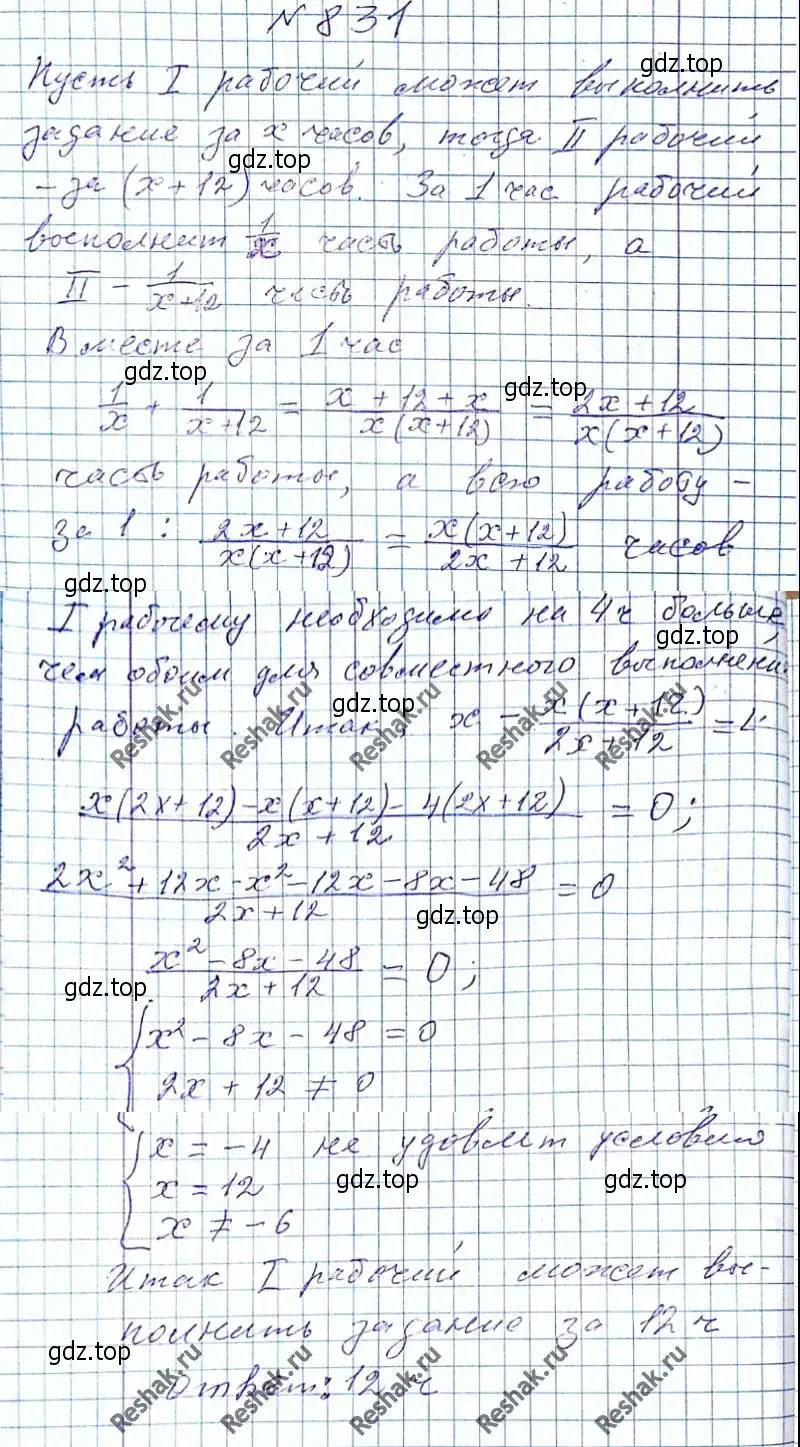 № 831
Пусть I рабочий может выполнить
gdz.top
задание за x часов, тогда II рабочий
gdz.top
- за (x+12) часов. За 1 час рабочий
восполнит 1/x часть работы, а
II - 1/(x+12) часть работы.
Вместе за 1 час
gdz.top
gdz.top
1/x + 1/(x+12) = (x+12+x)/(x(x+12)) = (2x+12)/(x(x+12))
часть работы, а всю работу -
за 1 : (2x+12)/(x(x+12)) = x(x+12)/(2x+12) часов
gdz.top
I рабочему необходимо на 4ч больше,
gdz.top
чем обоим для совместного выполнени
gdz.top
работы. Итак, x - x(x+12)/(2x+12) = 4
Reshak.ru Reshak.ru Reshak.ru Reshak.ru
(x(2x+12)-x(x+12)-4(2x+12))/(2x+12) = 0;
(2x²+12x-x²-12x-8x-48)/(2x+12) = 0
gdz.top
(x²-8x-48)/(2x+12) = 0;
gdz.top
{x²-8x-48=0
2x+12≠0
{x=-4 не удовлет условия
x=12
gdz.top gdz.top
x≠-6
Итак I рабочий может вы-
полнить задание за 12 ч
gdz.top
Ответ: 12 ч
Reshak.ru Reshak.ru Reshak.ru Reshak.ru